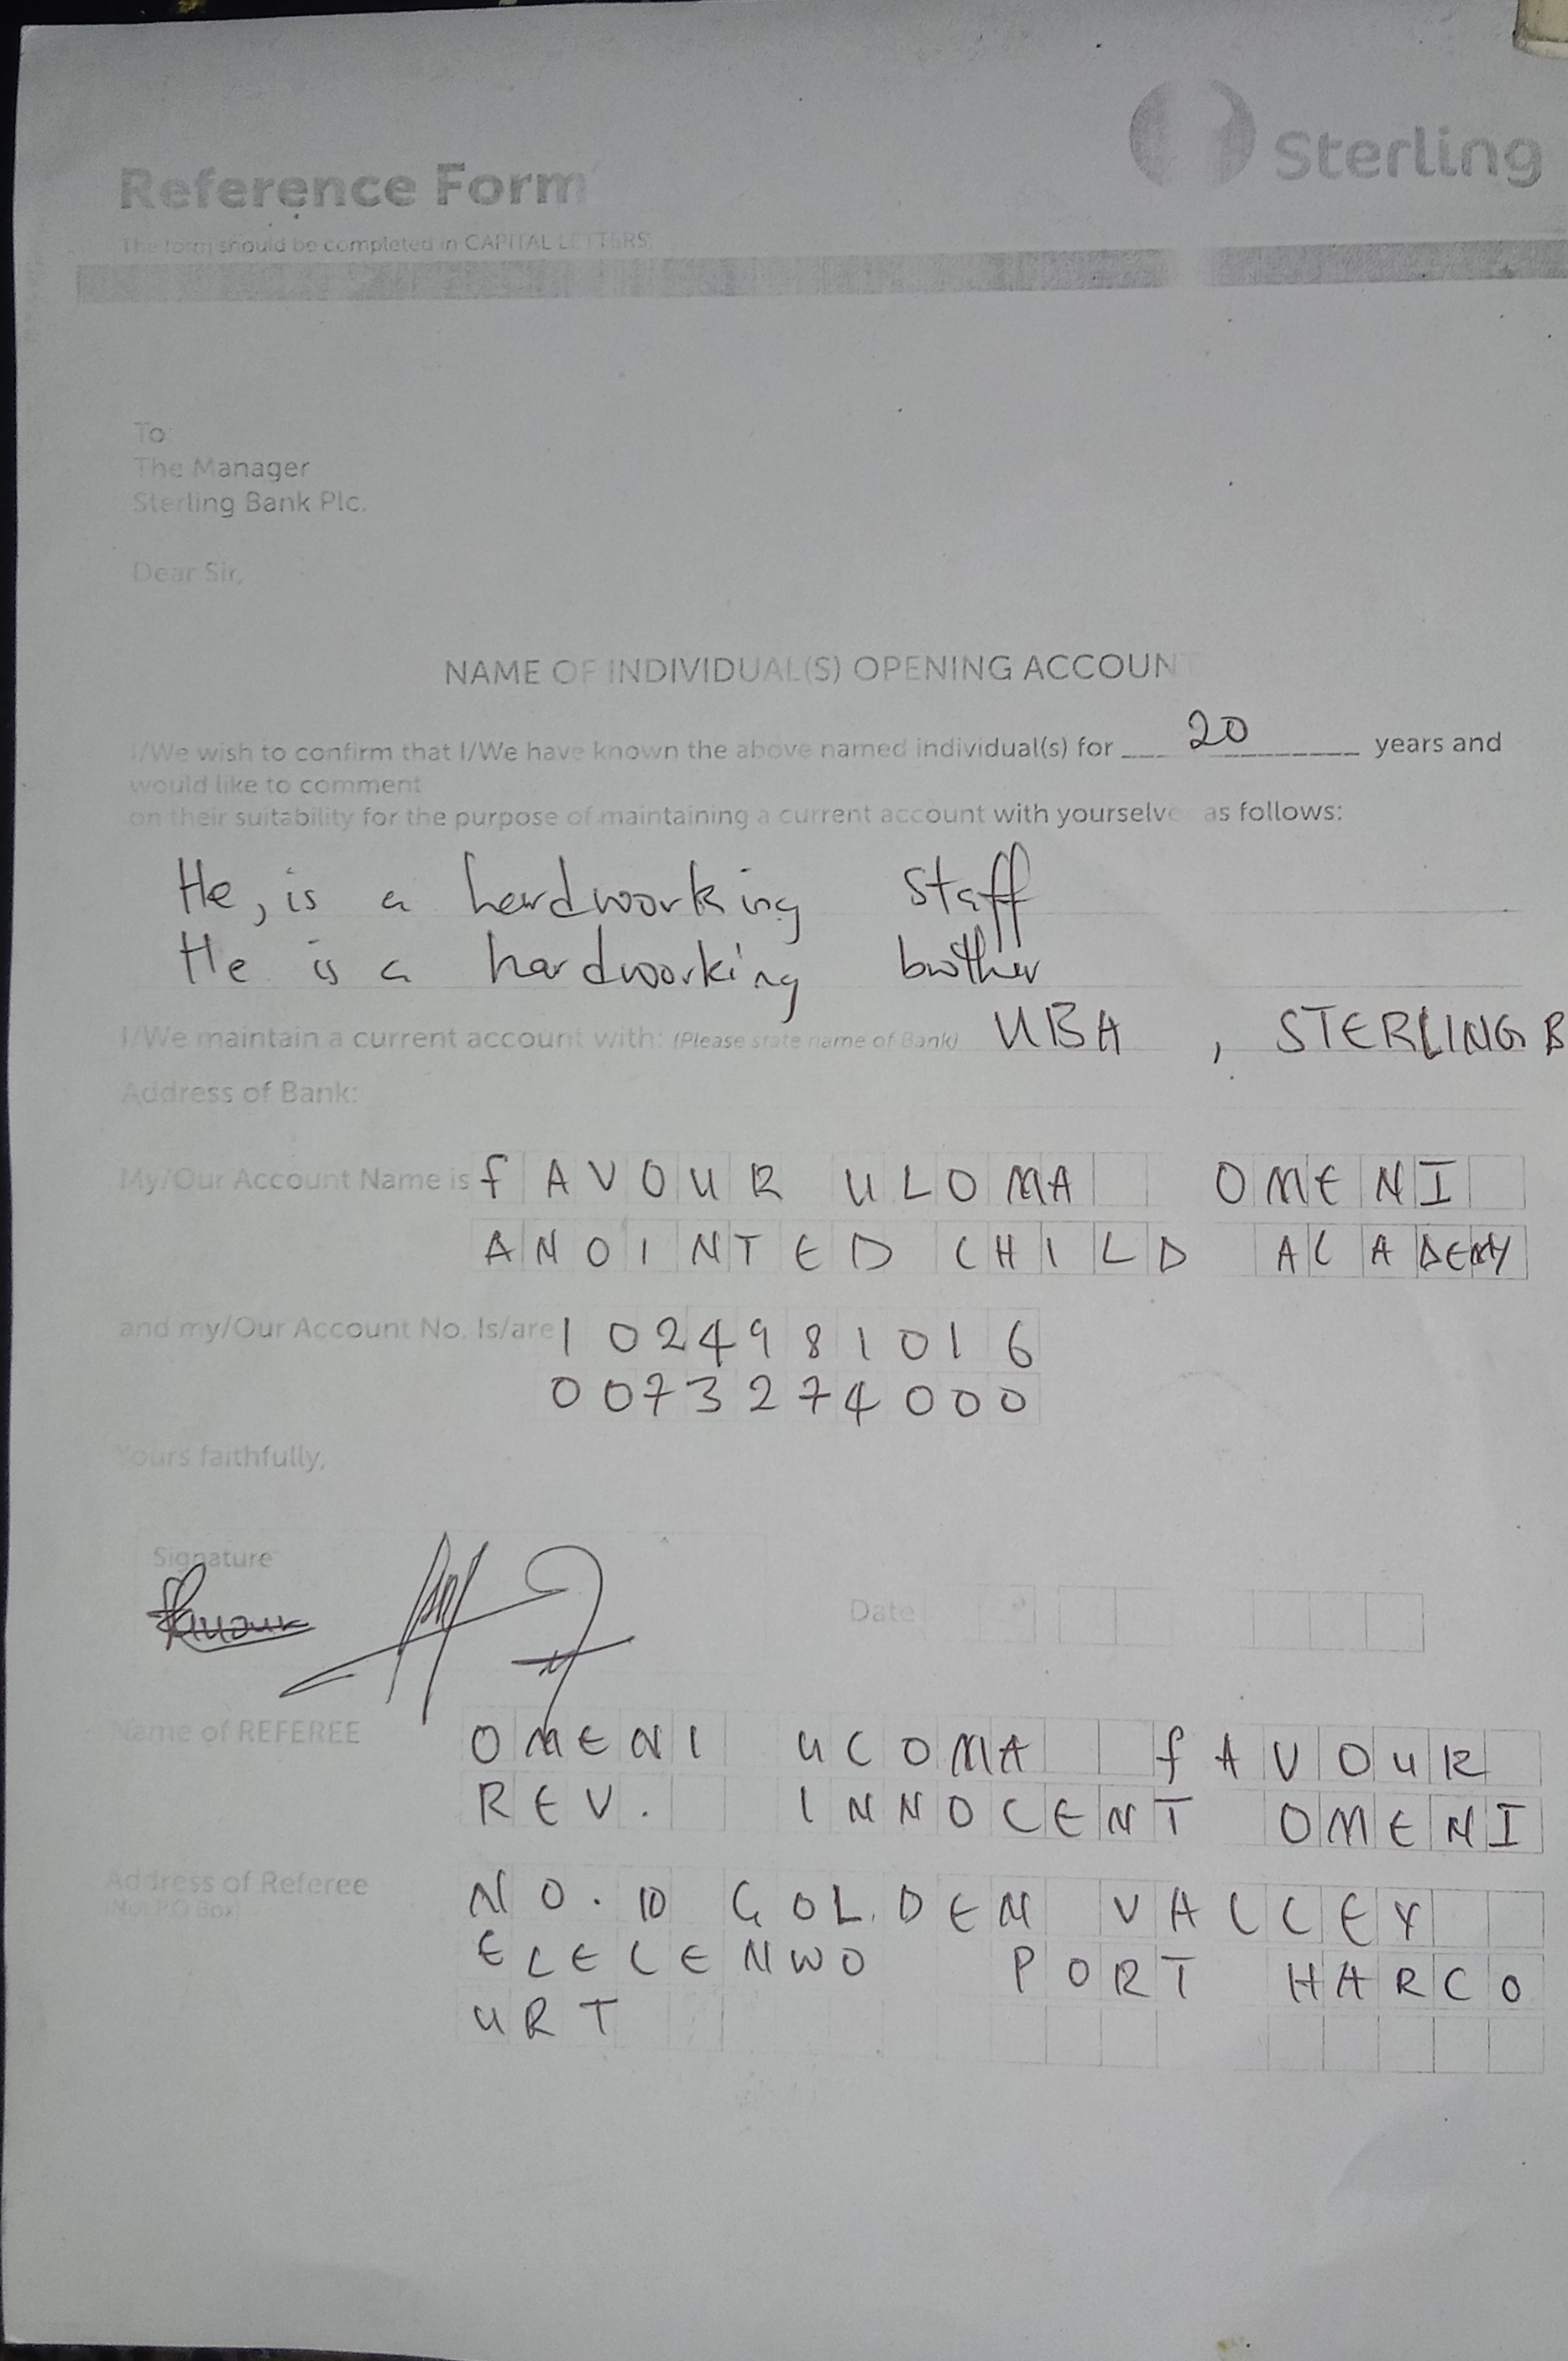 Sterling
Reference Form
The form should be completed in CAPITAL LETTERS
To
The Manager
Sterling Bank Plc.
Dear Sir,
NAME OF INDIVIDUAL(S) OPENING ACCOUNT
I/We wish to confirm that I/We have known the above named individual(s) for 20 years and
would like to comment
on their suitability for the purpose of maintaining a current account with yourselve as follows:
He, is a hardworking staff
He is a hardworking brother
I/We maintain a current account with: (Please state name of Bank) UBA , STERLING B
Address of Bank:
My/Our Account Name is fAVOUR ULOMA OMENI
ANOINTED CHILD ACADEMY
and my/Our Account No. Is/are 1024981016
0073274000
Yours faithfully,
Signature
Date
Name of REFEREE OMENI ULOMA fAVOUR
REV. INNOCENT OMENI
Address of Referee NO. 10 GOLDEN VALLEY
(Not P.O Box)
ELELENWO PORT HARCO
URT